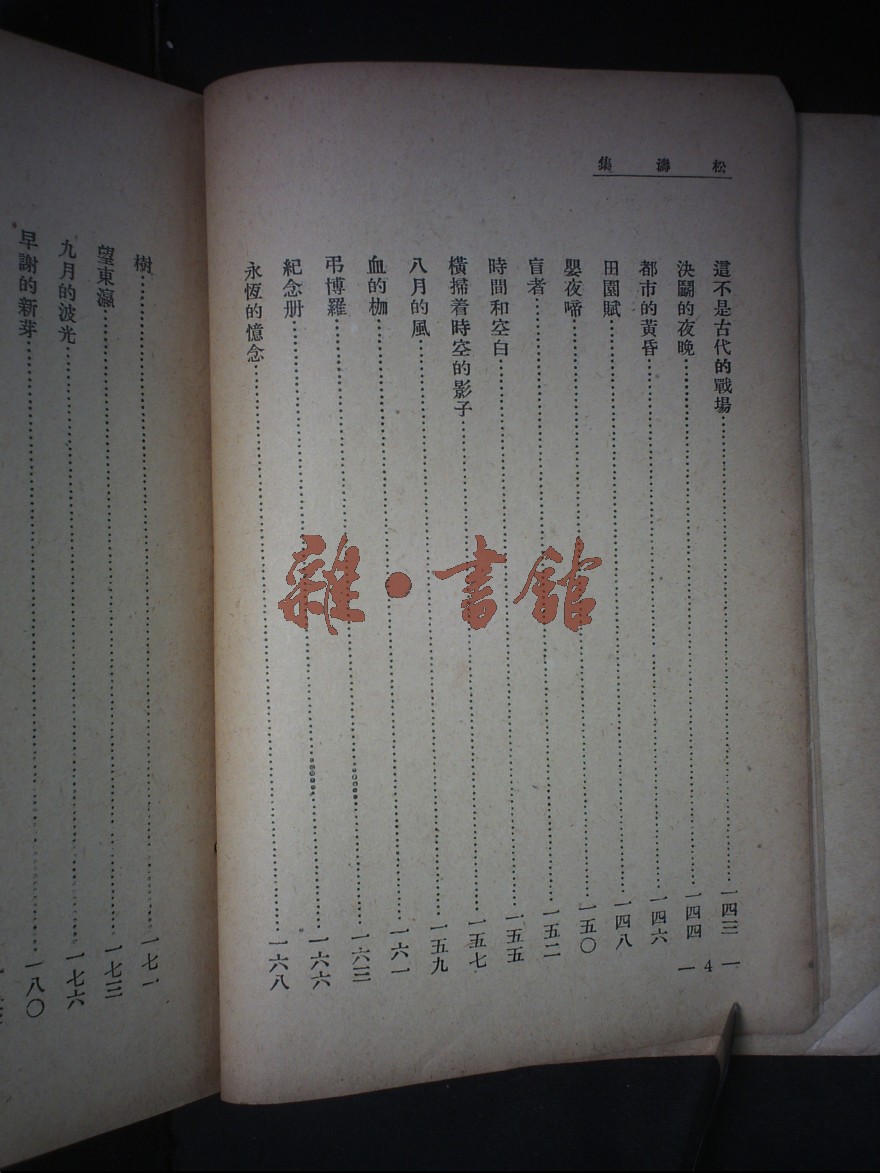 松濤集
這不是古代的戰場……一四三
決鬭的夜晚……一四四
都市的黃昏……一四六
田園賦……一四八
嬰夜啼……一五〇
盲者……一五二
時間和空白……一五五
橫掃着時空的影子……一五七
八月的風……一五九
血的枷……一六一
弔博羅……一六三
紀念册……一六六
永恆的憶念……一六八
— 4 —
樹……一七一
望東瀛……一七三
九月的波光……一七六
早謝的新芽……一八〇
雜·書館